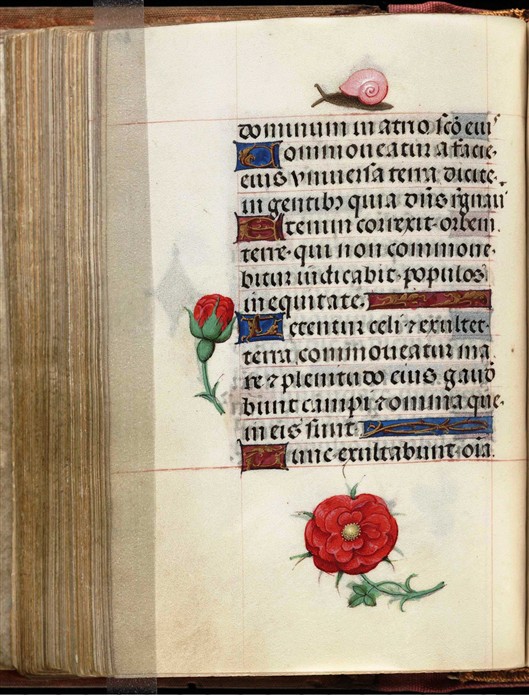 dominum in atrio sc̄o eiu᷒
Commoueatur a facie
eius vniuersa terra dicite
in gentibꝫ quia dn̄s regnaui
Etenim correxit orbem
terre qui non commoue
bitur iudicabit populos
in equitate.
Letentur celi ⁊ exultet
terra commoueatur ma
re ⁊ plenitudo eius gaud
bunt campi ⁊ omnia que
in eis sunt.
Tunc exultabunt oīa